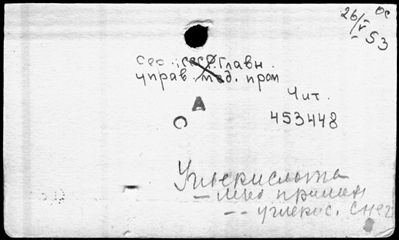 26/V 53
Ос
Сес.: Главн.
управ. мед. пром
Чит.
453448
А
Углекислота
— лече примен
-- углекис. снег